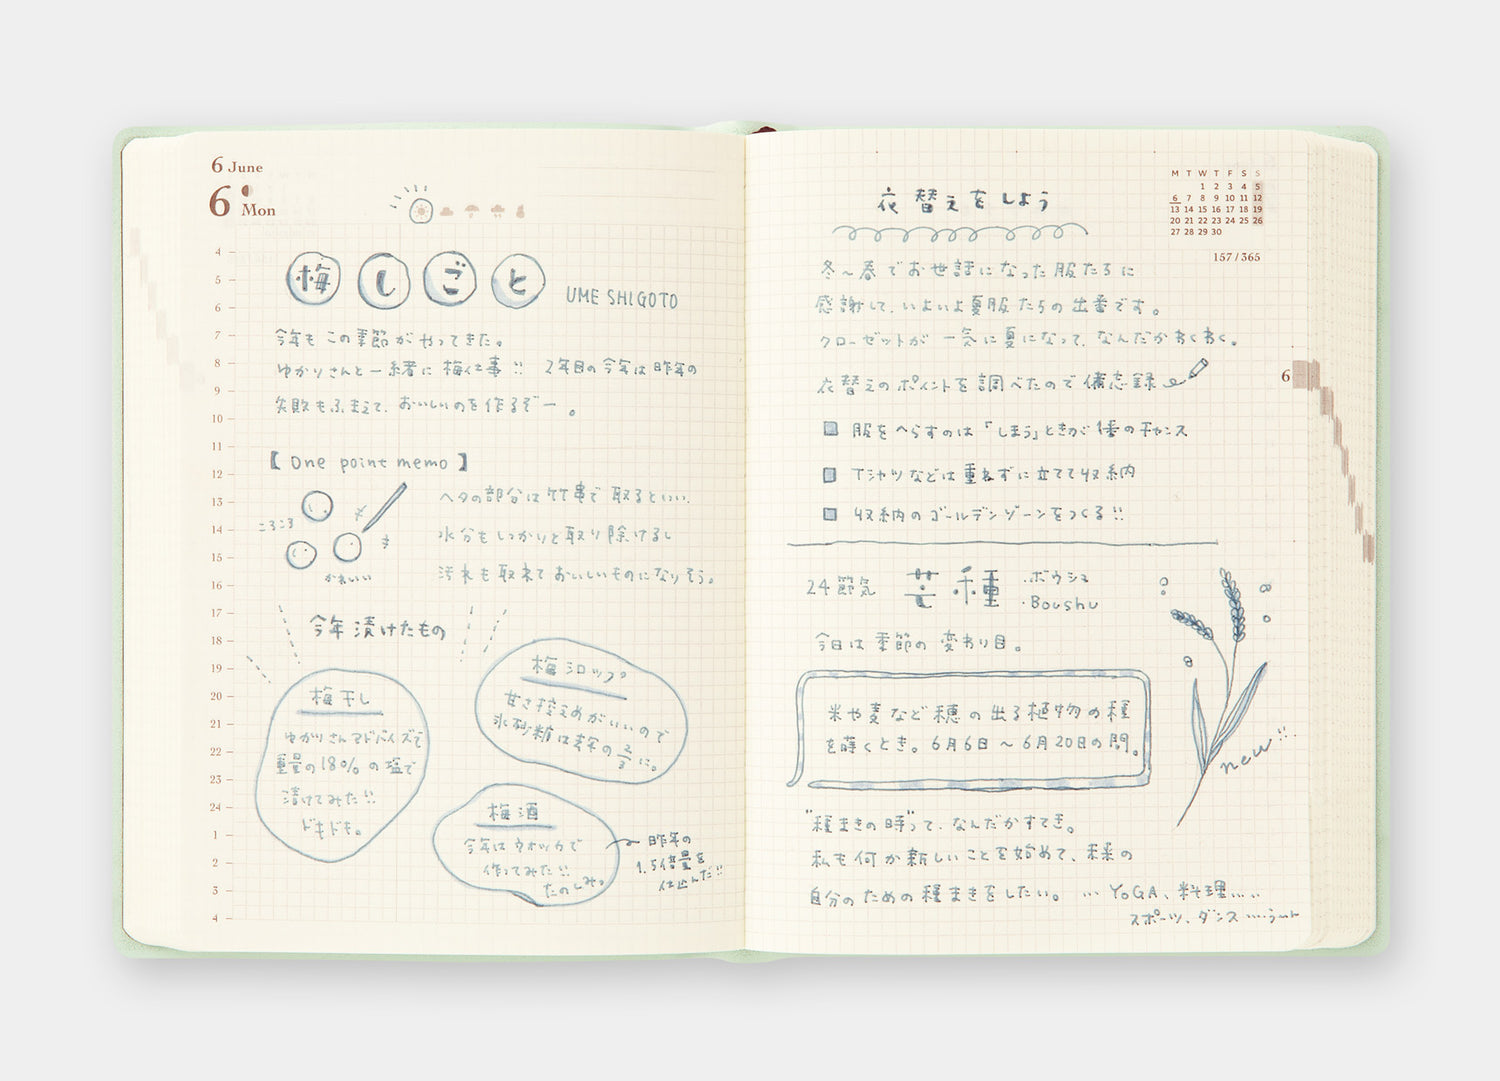 6 June
6 Mon
梅しごと
UME SHIGOTO
今年もこの季節がやってきた。
ゆかりさんと一緒に梅仕事!! 2年目の今年は昨年の
失敗もふまえて、おいしいのを作るぞー。
【One point memo】
ころころ
かわいい
ヘタの部分は竹串で取るといい。
水分もしっかりと取り除けるし
汚れも取れておいしいものになりそう。
今年漬けたもの
梅干し
ゆかりさんアドバイスで
重量の18%の塩で
漬けてみた!!
ドキドキ。
梅シロップ
甘さ控えめがいいので
氷砂糖は実の2/3に。
梅酒
今年はウォッカで
作ってみた!!
たのしみ。
昨年の
1.5倍量を
仕込んだ!!
4
5
6
7
8
9
10
11
12
13
14
15
16
17
18
19
20
21
22
23
24
1
2
3
4
衣替えをしよう
冬〜春でお世話になった服たちに
感謝して、いよいよ夏服たちの出番です。
クローゼットが一気に夏になって、なんだかわくわく。
衣替えのポイントを調べたので備忘録
服をへらすのは「しまう」ときが1番のチャンス
Tシャツなどは重ねずに立てて収納
収納のゴールデンゾーンをつくる!!
24節気 芒種
・ボウシュ
・Boushu
今日は季節の変わり目。
米や麦など穂の出る植物の種
を蒔くとき。6月6日〜6月20日の間。
new!!
"種まきの時"って、なんだかすてき。
私も何か新しいことを始めて、未来の
自分のための種まきをしたい。…YOGA、料理……
スポーツ、ダンス……うーん
M T W T F S S
1 2 3 4 5
6 7 8 9 10 11 12
13 14 15 16 17 18 19
20 21 22 23 24 25 26
27 28 29 30
157/365
6